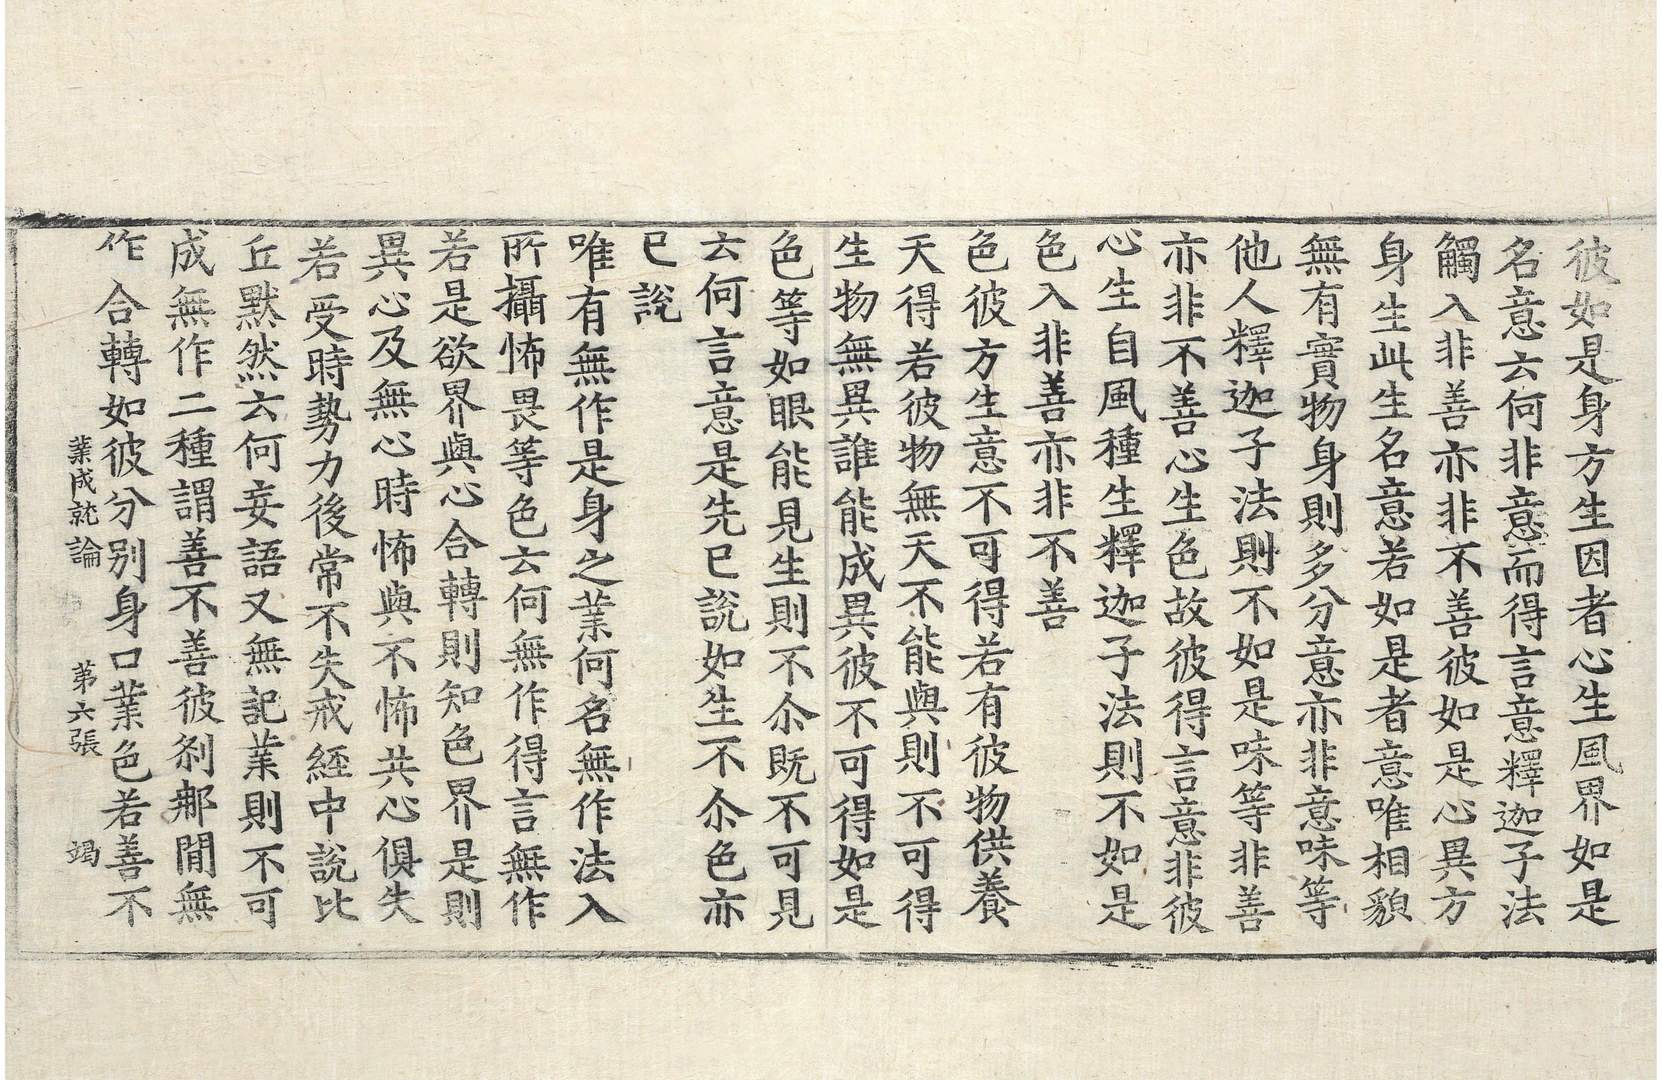 彼如是身方生因者心生風界如是
名意云何非意而得言意釋迦子法
觸入非善亦非不善彼如是心異方
身生此生名意若如是者意唯相貌
無有實物身則多分意亦非意味等
他人釋迦子法則不如是味等非善
亦非不善心生色故彼得言意非彼
心生自風種生釋迦子法則不如是
色入非善亦非不善
色彼方生意不可得若有彼物供養
天得若彼物無天不能與則不可得
生物無異誰能成異彼不可得如是
色等如眼能見生則不尒既不可見
云何言意是先已說如生不尒色亦
已說
唯有無作是身之業何名無作法入
所攝怖畏等色云何無作得言無作
若是欲界與心合轉則知色界是則
異心及無心時怖與不怖共心俱失
若受時勢力後常不失戒經中說比
丘默然云何妄語又無記業則不可
成無作二種謂善不善彼刹㲚閒無
作合轉如彼分别身口業色若善不
業成就論 第六張 竭